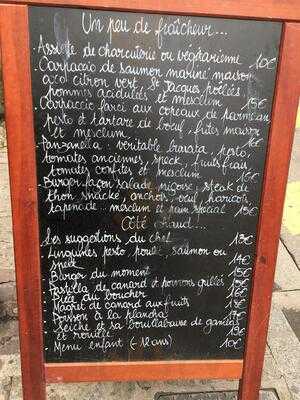 Un peu de fraîcheur...
. Assiette de charcuterie ou végétarienne 10€
. Carpaccio de saumon mariné maison
citron vert, St Jacques poêlées
pommes acidulées et mesclum 15€
. Carpaccio farci aux copeaux de parmesan
pesto et tartare de bœuf, frites maison
et mesclum 16€
. Panzanella : véritable burata, pesto,
tomates anciennes, speck, fruits frais,
tomates confites et mesclum 15€
. Burger façon salade niçoise, steak de
thon snacké, anchois, œuf, haricots
tapenade... mesclum et pain spécial 15€
Côté chaud...
. Les suggestions du chef 13€
. Linguines pesto, poulet, saumon ou
speck 14€
. Burger du moment 15€
. Pastilla de canard et poivrons grillés 15€
. Pièce du boucher 16€
. Magret de canard aux fruits
. Poisson à la plancha 17€
. Seiche et sa bouillabaisse de gambas
et rouille 19€
. Menu enfant (- 12 ans) 10€